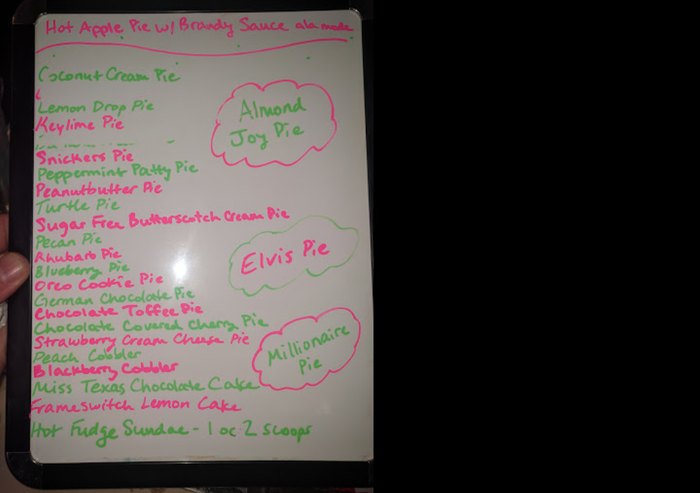 Hot Apple Pie w/ Brandy Sauce ala mode
Coconut Cream Pie
Lemon Drop Pie
Keylime Pie
Almond
Joy Pie
Snickers Pie
Peppermint Patty Pie
Peanutbutter Pie
Turtle Pie
Sugar Free Butterscotch Cream Pie
Pecan Pie
Rhubarb Pie
Blueberry Pie
Elvis Pie
Oreo Cookie Pie
German Chocolate Pie
Chocolate Toffee Pie
Chocolate Covered Cherry Pie
Strawberry Cream Cheese Pie
Peach Cobbler
Blackberry Cobbler
Millionaire
Pie
Miss Texas Chocolate Cake
Frameswitch Lemon Cake
Hot Fudge Sundae - 1 or 2 scoops